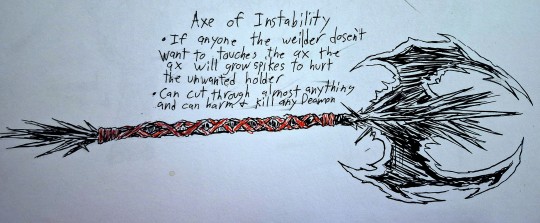 Axe of Instability
• If anyone the weilder dosen't
want to touches the ax the
ax will grow spikes to hurt
the unwanted holder
• Can cut through almost anything
and can harm & kill any Deamon